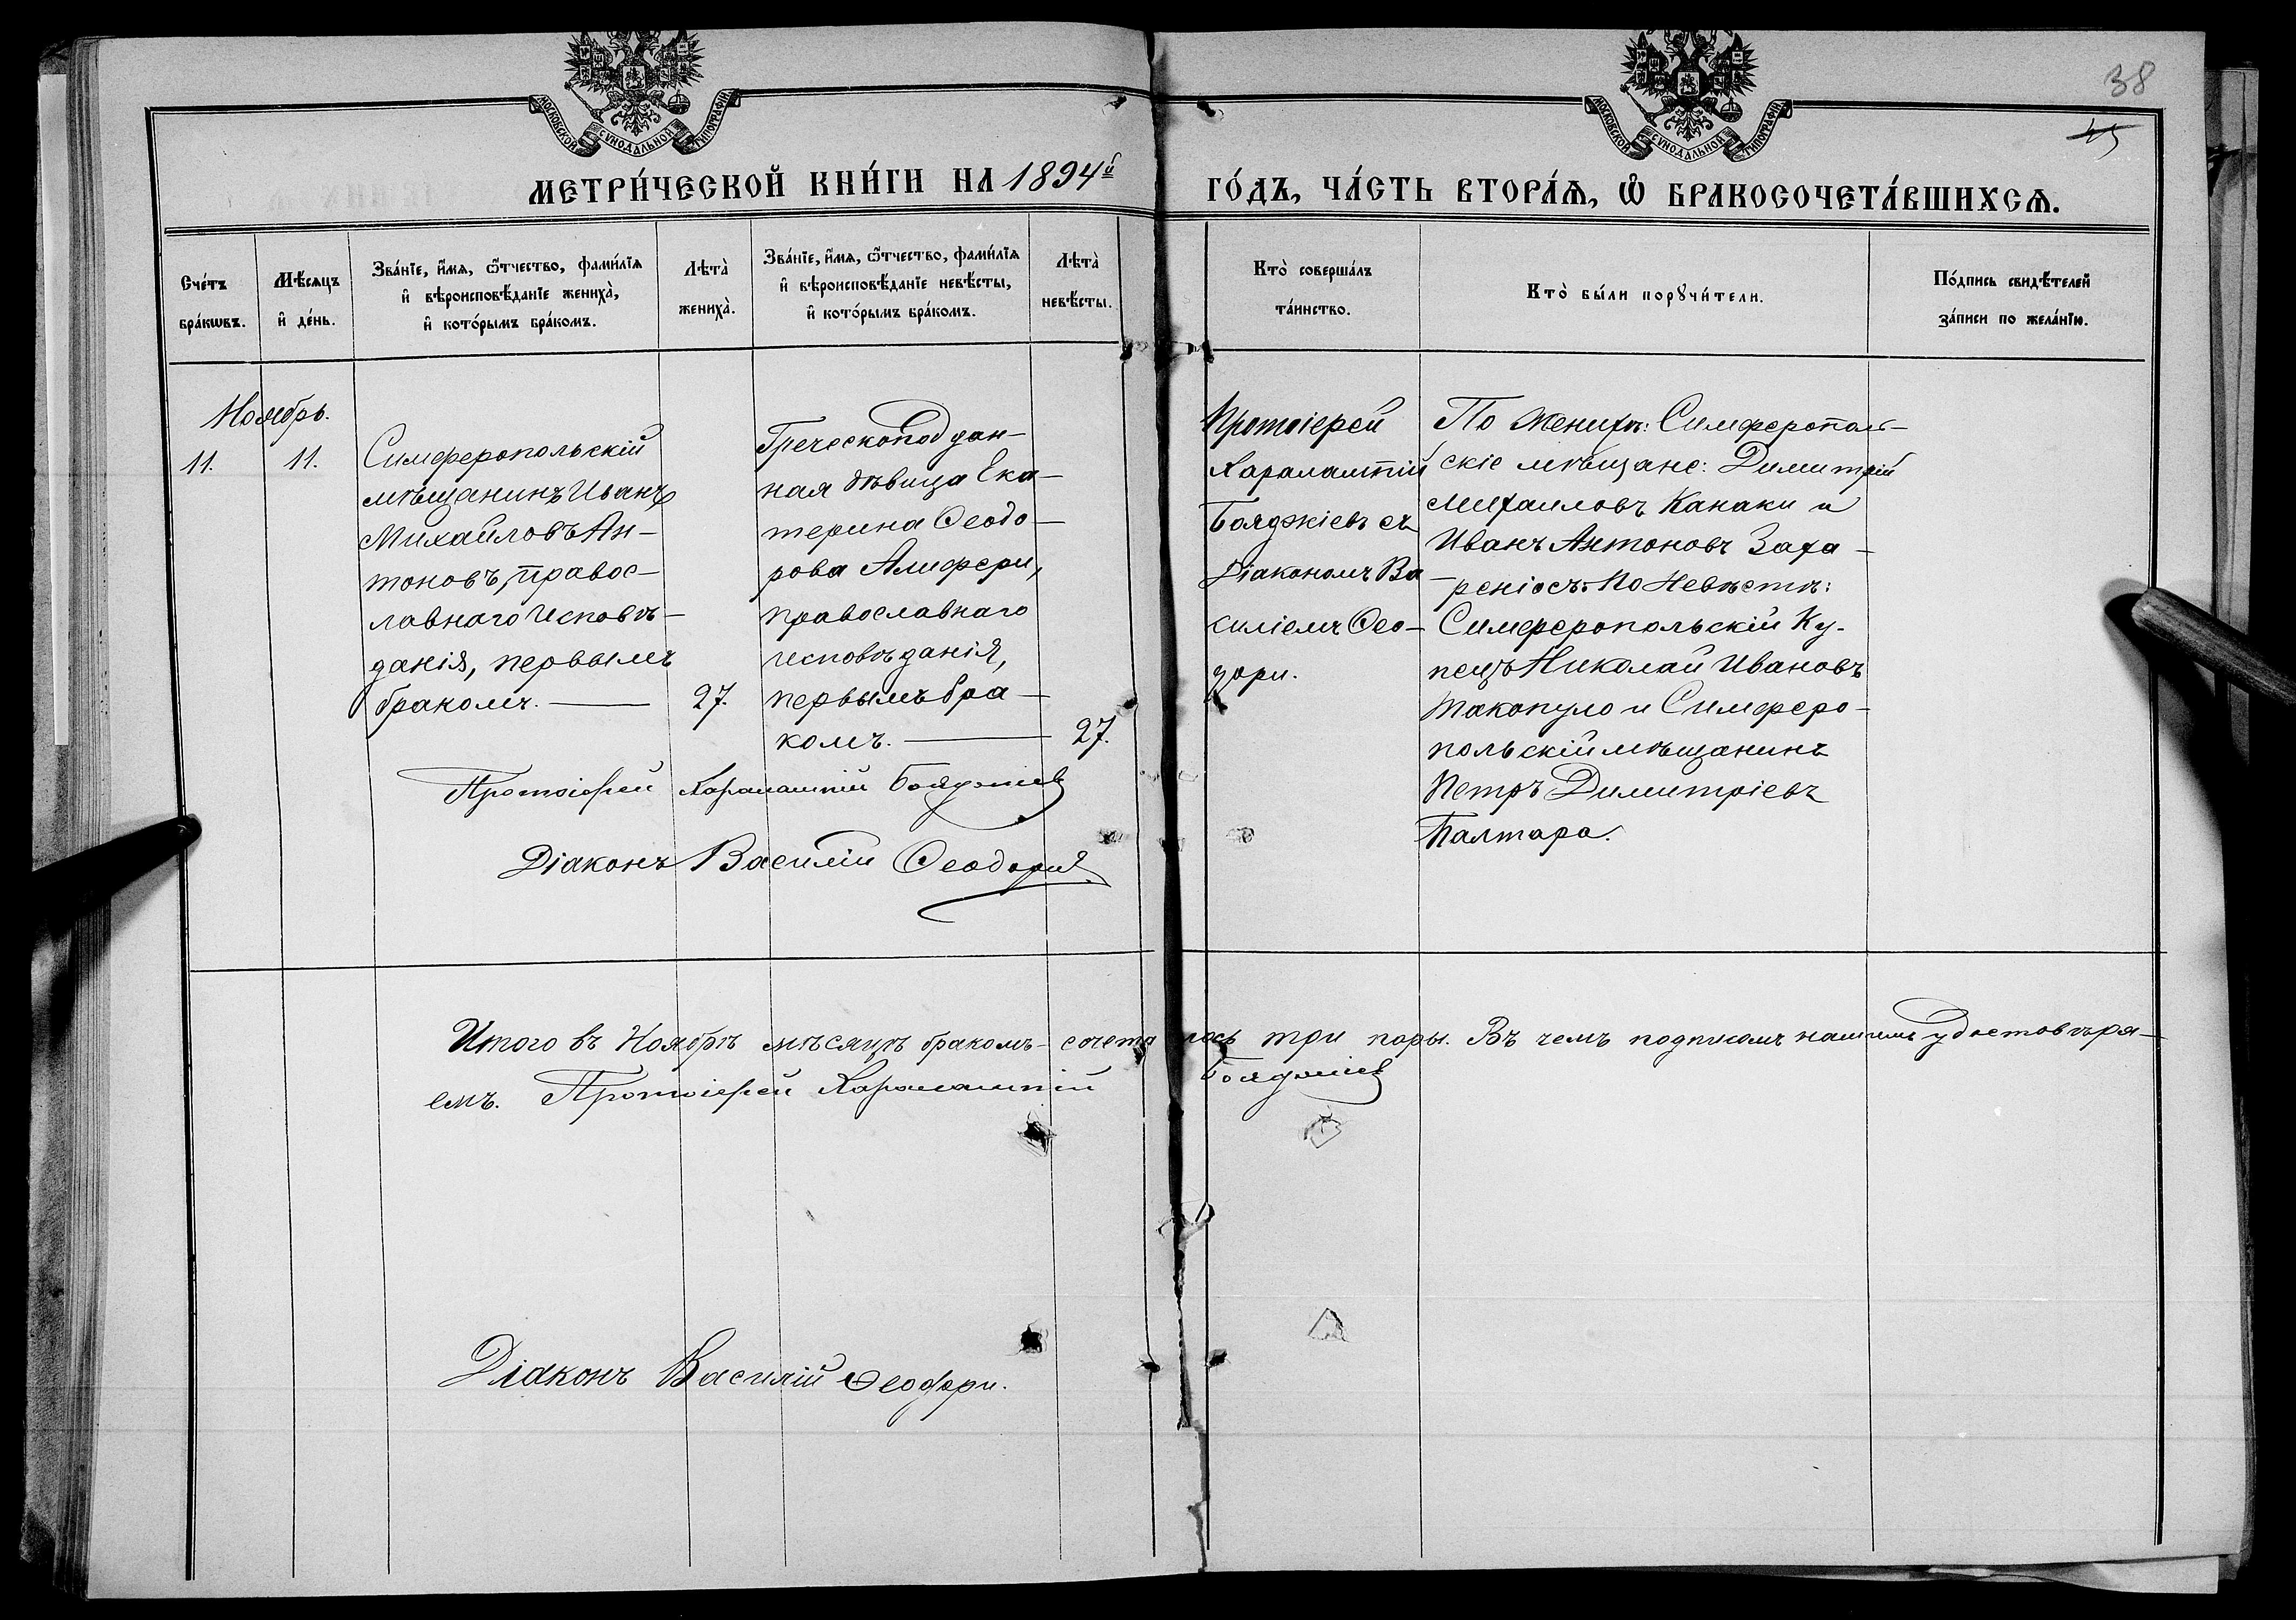 МОСКОВСКОЙ СѴНОДАЛЬНОЙ ТИПОГРАФІИ
МОСКОВСКОЙ СѴНОДАЛЬНОЙ ТИПОГРАФІИ
38
МЕТРИ́ЧЕСКОЙ КНИ́ГИ НА 1894й ГО́ДЪ, ЧА́СТЬ ВТОРА́Ѧ, Ѽ БРАКОСОЧЕТА́ВШИХСѦ.
Сче́тъ
бра́кѡвъ.
Мѣ́сяцъ
и҆ де́нь.
Зва́нїе, и҆́мѧ, ѻ҆́тчество, фами́лїѧ
и҆ вѣроисповѣ́данїе жениха̀,
и҆ кото́рымъ бра́комъ.
Лѣта̀
жениха̀.
Зва́нїе, и҆́мѧ, ѻ҆́тчество, фами́лїѧ
и҆ вѣроисповѣ́данїе невѣ́сты,
и҆ кото́рымъ бра́комъ.
Лѣта̀
невѣ́сты.
Кто̀ соверша́лъ
та́инство.
Кто̀ бы́ли порꙋчи́тели.
По́дпись свидѣ́телей
за́писи по жела́нїю.
Ноябрь.
11.
11.
Симферопольскій
мѣщанинъ Иванъ
Михайловъ Ан-
тоновъ, правос-
лавнаго исповѣ-
данія, первымъ
бракомъ. —
27.
Греческоподдан-
ная дѣвица Ека-
терина Ѳеодо-
рова Алифери,
православнаго
исповѣданія,
первымъ бра-
комъ. —
27.
Протоіерей
Харалампій
Бояджіевъ съ
Діакономъ Ва-
силіемъ Ѳео-
дори.
По Женихѣ: Симферополь-
скіе мѣщане: Димитрій
Михаиловъ Канаки и
Иванъ Антоновъ Заха-
реніосъ. По Невѣстѣ:
Симферопольскій Ку-
пецъ Николай Ивановъ
Такопуло и Симферо-
польскій мѣщанинъ
Петръ Димитріевъ
Палтара.
Протоіерей Харалампій Бояджіев
Діаконъ Василій Ѳеодори
Итого въ Ноябрѣ мѣсяцѣ бракомъ-сочеталось три пары. Въ чемъ подписомъ нашимъ удостовѣря-
емъ. Протоіерей Харалампій Бояджіев
Діаконъ Василій Ѳеодори.